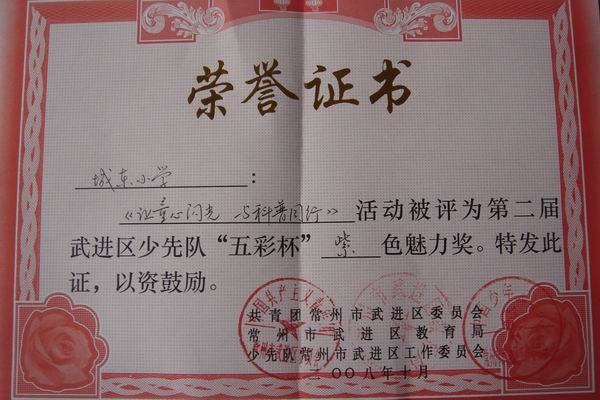 荣誉证书
城东小学：
《让童心闪光 与科普同行》活动被评为第二届
武进区少先队“五彩杯”紫色魅力奖。特发此
证，以资鼓励。
共青团常州市武进区委员会
常州市武进区教育局
少先队常州市武进区工作委员会
二〇〇八年十月